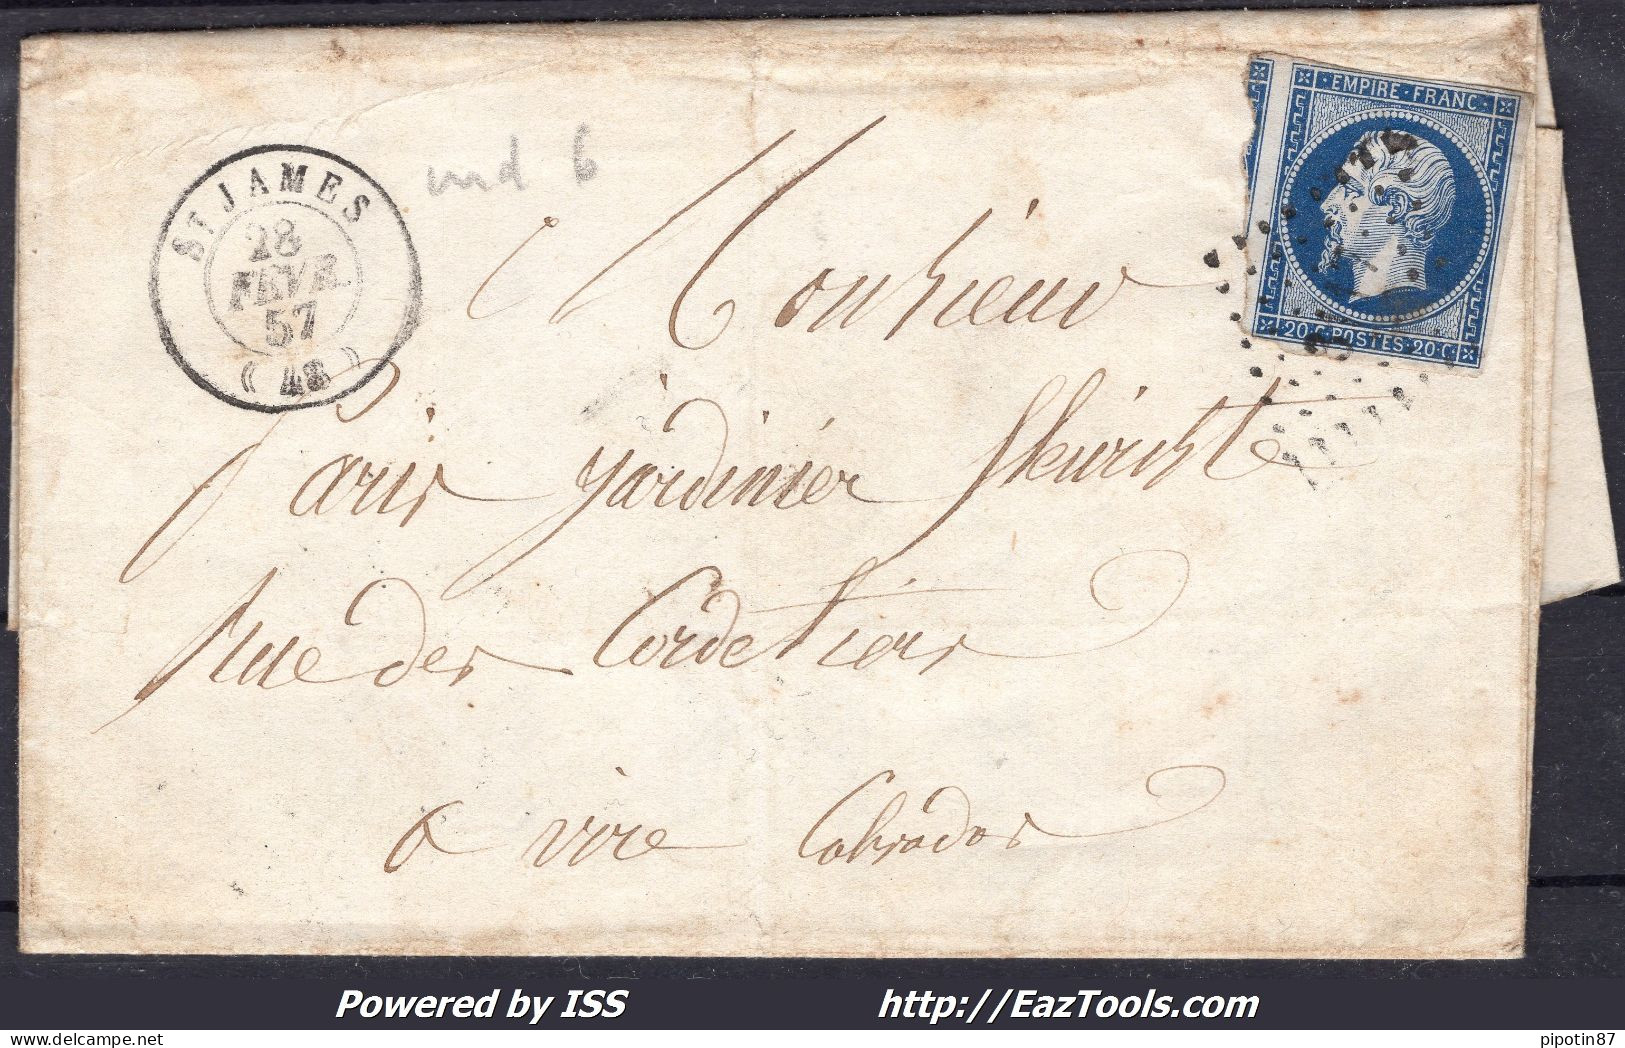 ST JAMES
28
FEVR.
57
(48)
ind 6
EMPIRE·FRANC·
20·C·POSTES·20·C
Monsieur
Paris jardinier fleuriste
Rue des Cordeliers
a vire Calvados
Powered by ISS http://EazTools.com
pipotin87